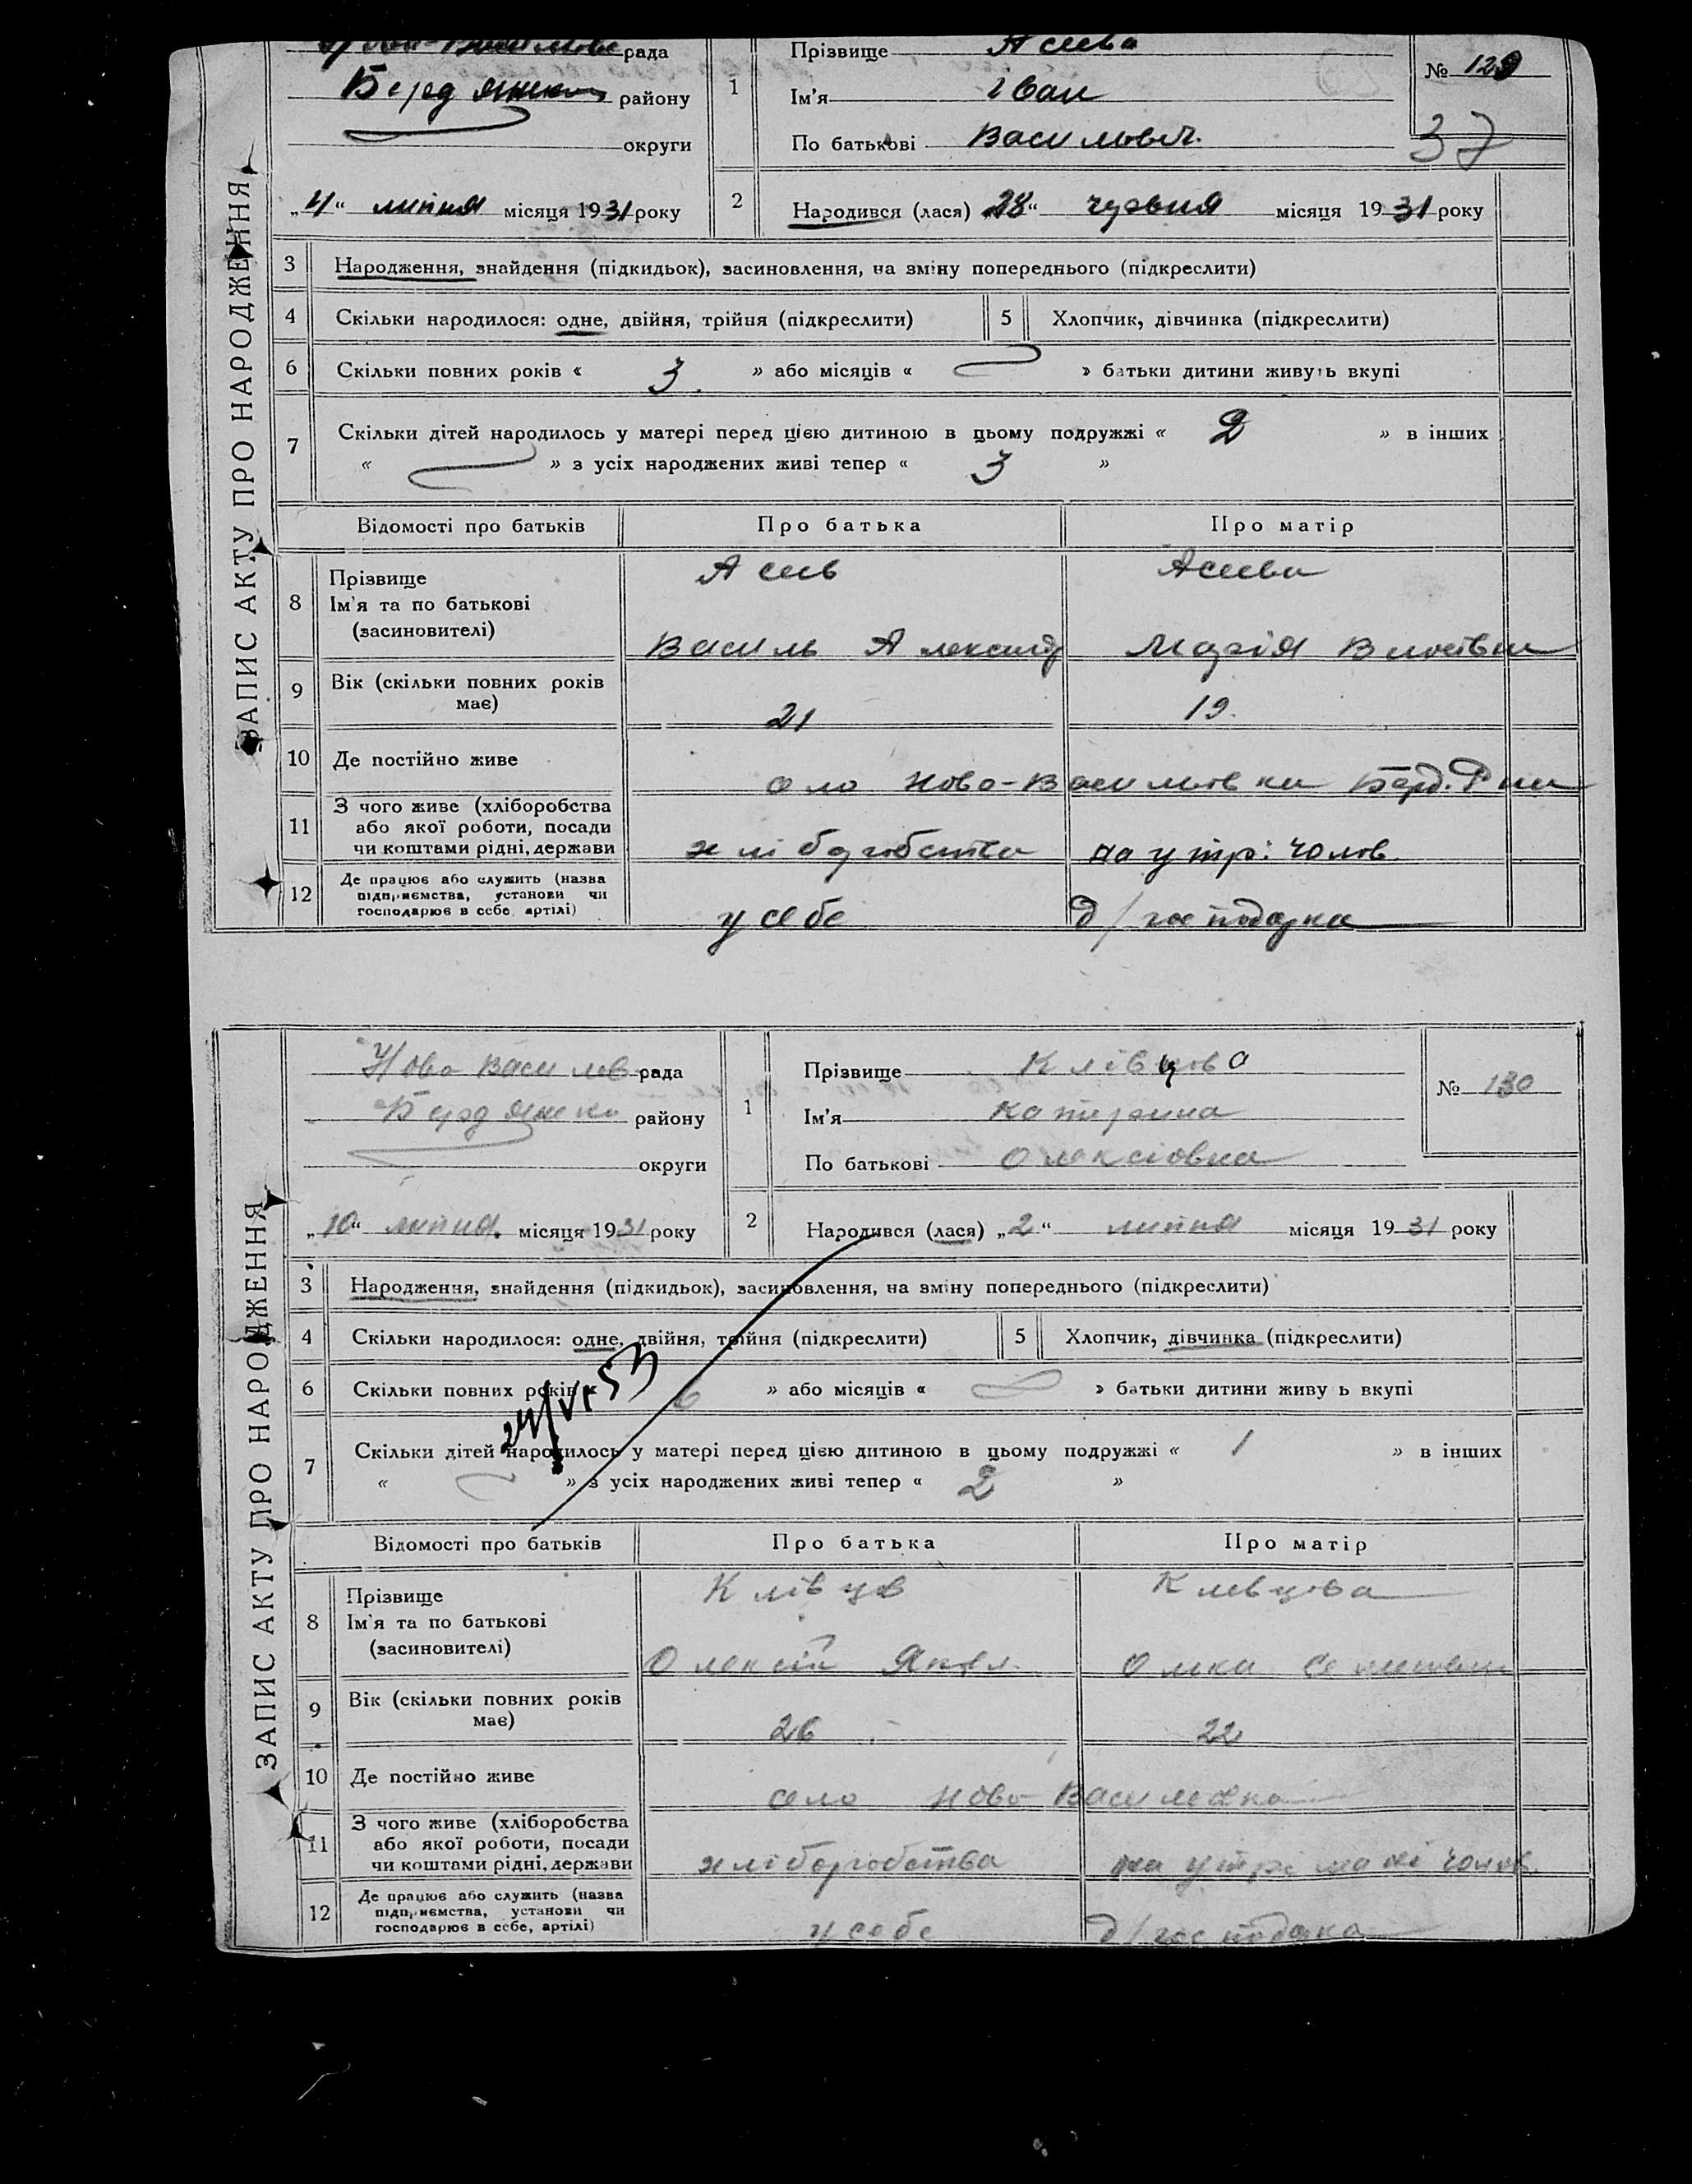 рада
Прізвище Асєева
№ 129
Бердянськ району
1
Ім'я Іван
округи
По батькові Васильович.
37
„4“ липня місяця 1931 року
2
Народився (лася) „28“ червня місяця 1931 року
ЗАПИС АКТУ ПРО НАРОДЖЕННЯ
3 Народження, знайдення (підкидьок), засиновлення, на зміну попереднього (підкреслити)
4 Скільки народилося: одне, двійня, трійня (підкреслити)
5 Хлопчик, дівчинка (підкреслити)
6 Скільки повних років « 3 » або місяців « » батьки дитини живуть вкупі
7 Скільки дітей народилось у матері перед цією дитиною в цьому подружжі « 2 » в інших
« » з усіх народжених живі тепер « 3 »
Відомості про батьків Про батька Про матір
8 Прізвище
Ім'я та по батькові
(засиновителі)
Василь Александ Марія
9 Вік (скільки повних років має)
21 19.
10 Де постійно живе
село Ново-Василівка Берд. Р
11 З чого живе (хліборобства
або якої роботи, посади
чи коштами рідні, держави
хліборобства на утр. чолов.
12 Де працює або служить (назва
підприємства, установи чи
господарює в себе, артілі)
у себе д/господарка
Ново Василів рада
Прізвище Клівцова
№ 130
Бердянськ району
1
Ім'я Катерина
округи
По батькові Олексіовна
„10“ липня. місяця 1931 року
2
Народився (лася) „2“ липня місяця 1931 року
ЗАПИС АКТУ ПРО НАРОДЖЕННЯ
3 Народження, знайдення (підкидьок), засиновлення, на зміну попереднього (підкреслити)
4 Скільки народилося: одне, двійня, трійня (підкреслити)
5 Хлопчик, дівчинка (підкреслити)
6 Скільки повних років « 6 » або місяців « » батьки дитини живуть вкупі
24/VI 53
7 Скільки дітей народилось у матері перед цією дитиною в цьому подружжі « 1 » в інших
« » з усіх народжених живі тепер « 2 »
Відомості про батьків Про батька Про матір
8 Прізвище
Ім'я та по батькові
(засиновителі)
Клівцов Клевцова
Олексій Яковл.
9 Вік (скільки повних років має)
26 22
10 Де постійно живе
село Ново Василівка
11 З чого живе (хліборобства
або якої роботи, посади
чи коштами рідні, держави
хліборобства на утриманні чолов.
12 Де працює або служить (назва
підприємства, установи чи
господарює в себе, артілі)
у себе д/господарка